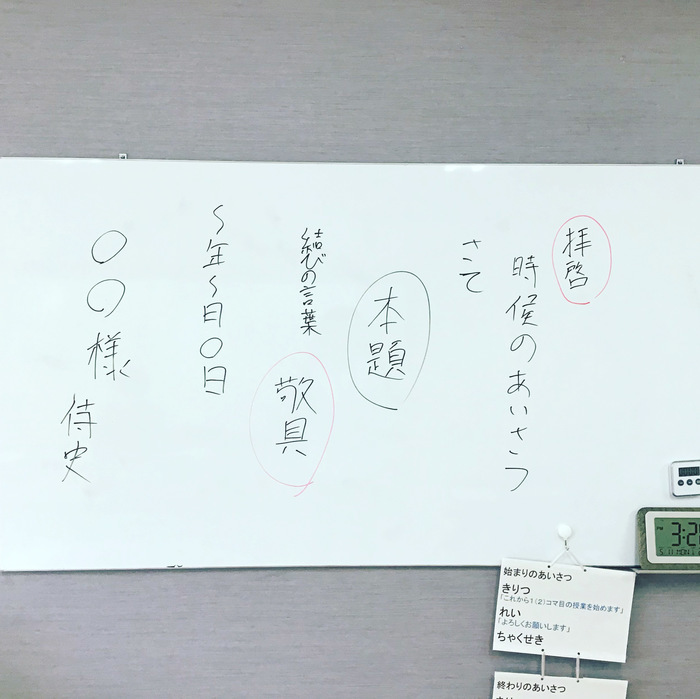 拝啓
時候のあいさつ
さて
本題
結びの言葉
敬具
〜年〜月〇日
〇〇様 侍史
PM 3:2
MON
始まりのあいさつ
きりつ
「これから1(2)コマ目の授業を始めます」
れい
「よろしくお願いします」
ちゃくせき
終わりのあいさつ